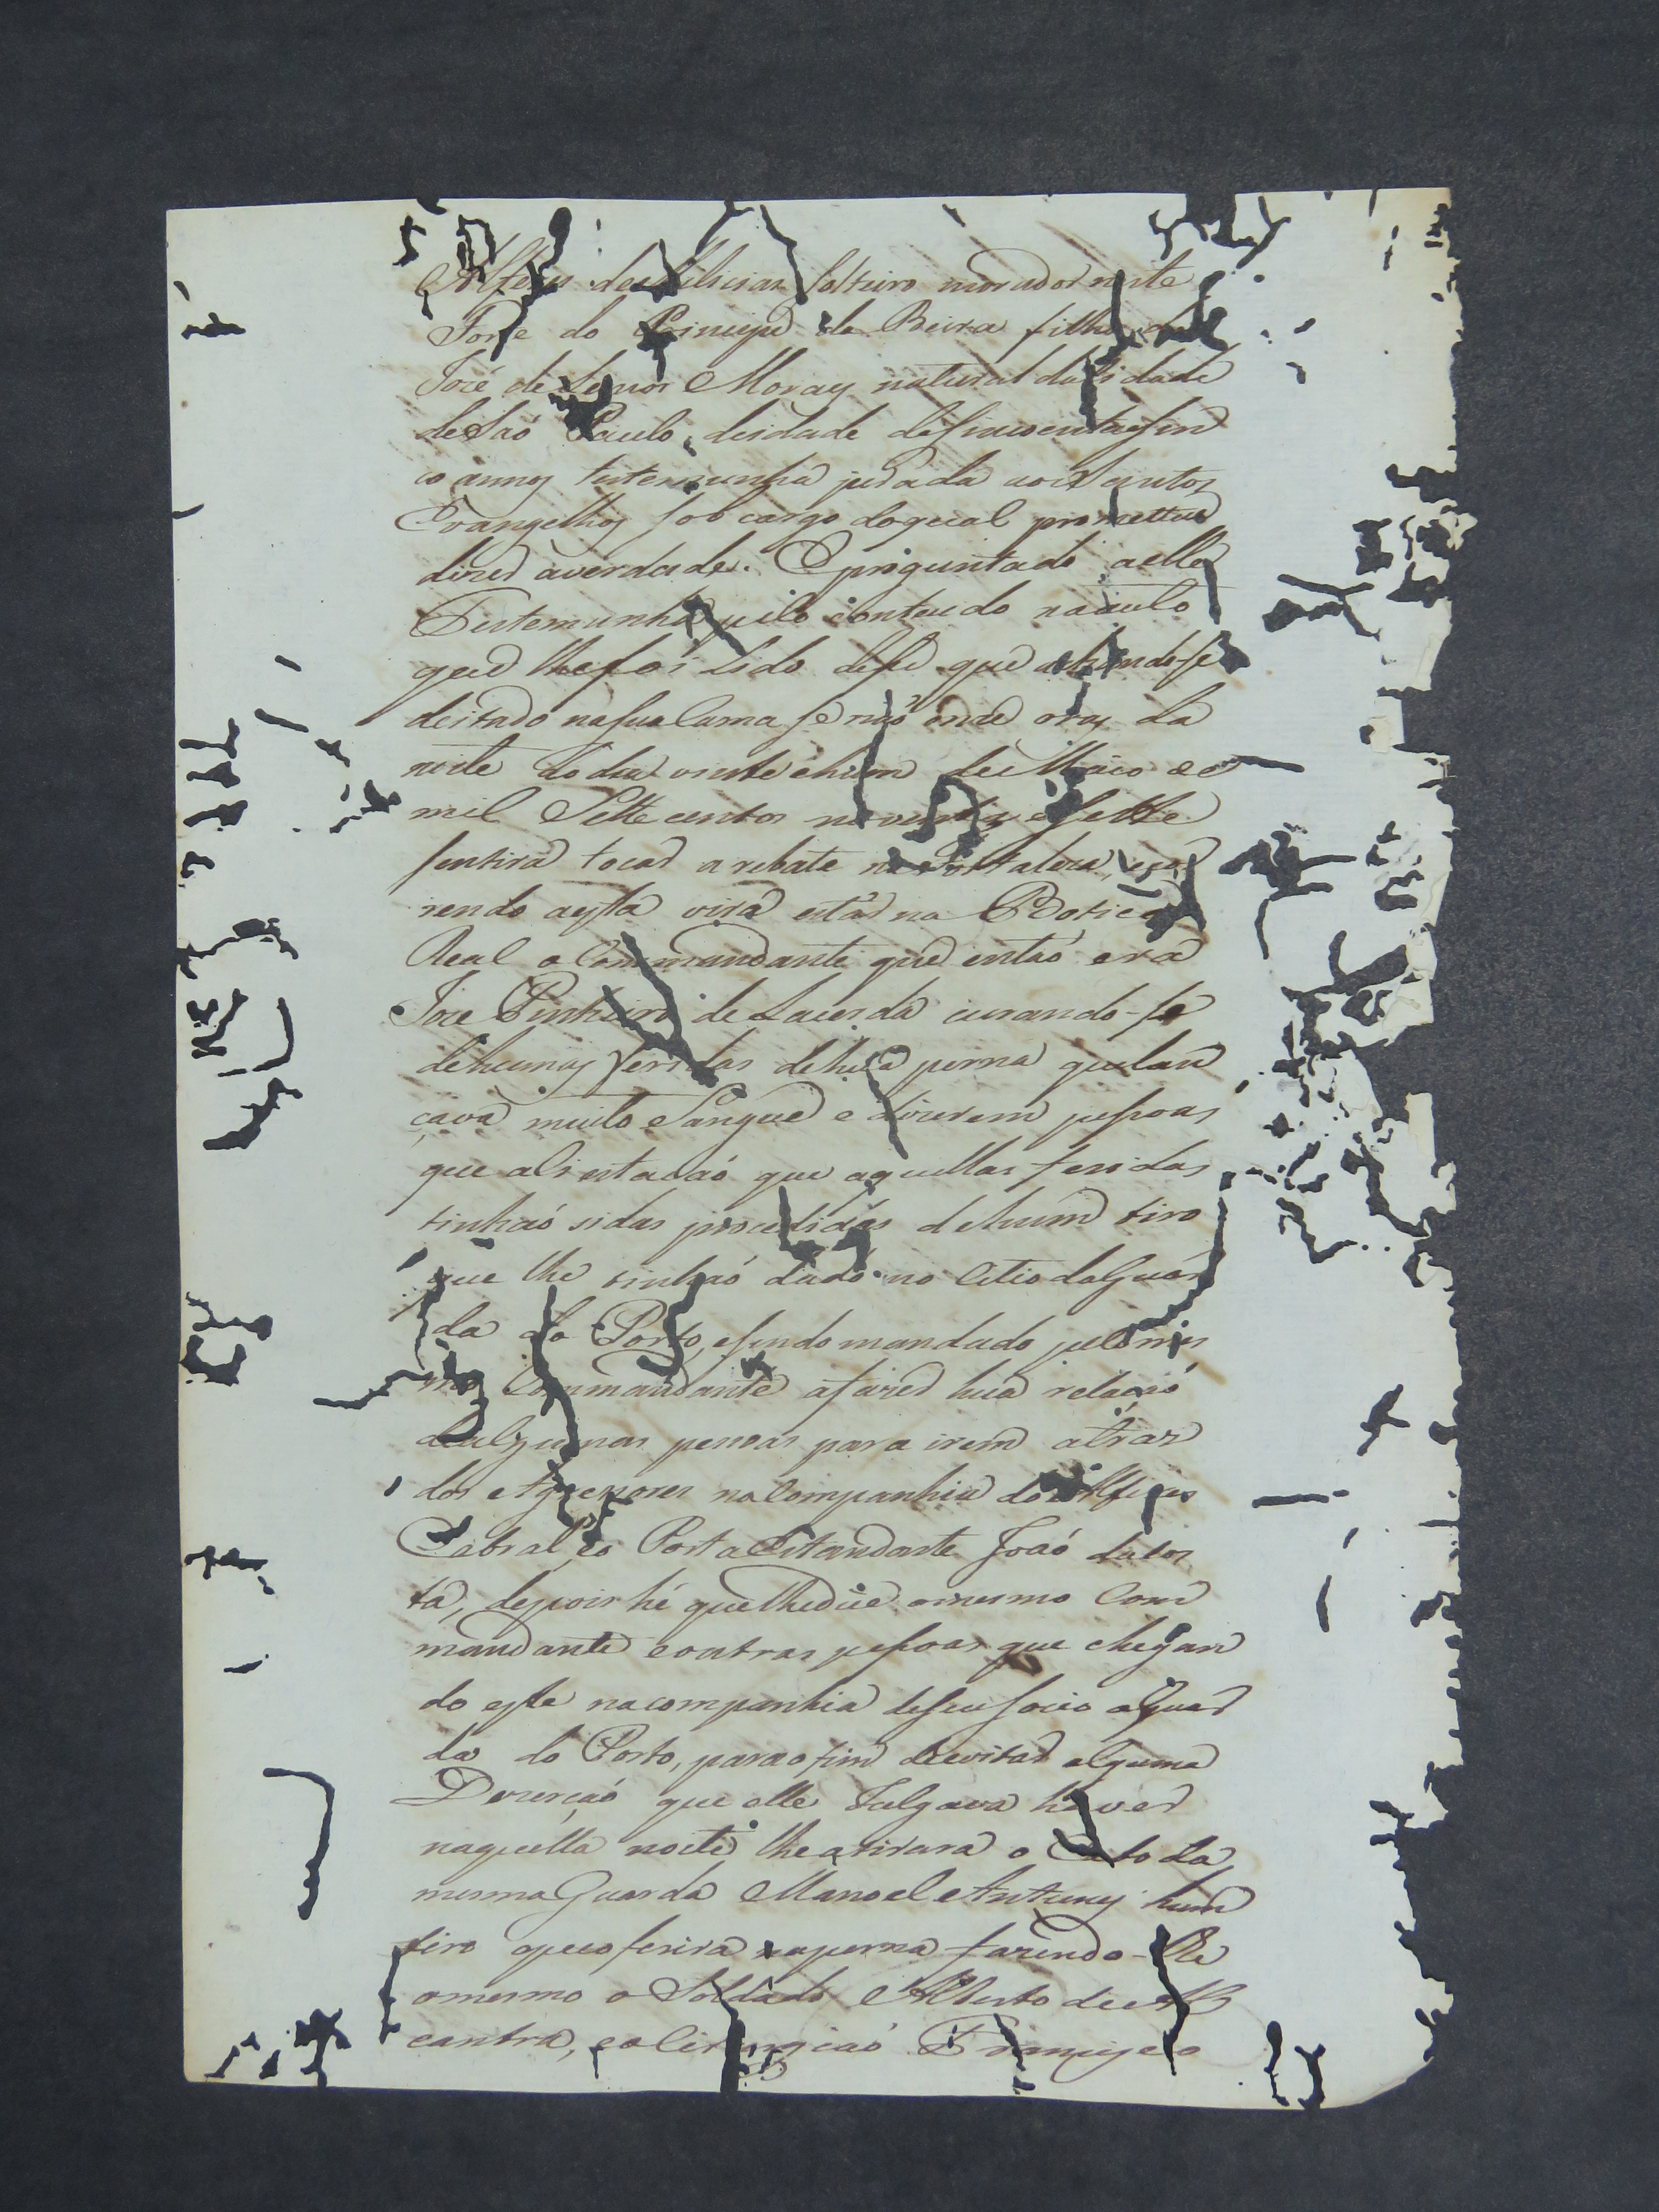 Alferes de Milicias solteiro morador neste
Forte do Principe da Beira filho de
José de Lemos Moraes natural da Cidade
de Saó Paulo, deidade de sincoenta e sin
co annos testemunha jurada aos Santos
Evangelhos sob cargo do qual prometteu
dizer averdade. E preguntado a elle
Testemunha pelo conteudo no auto
que lhe foi lido disse que achando-se
deitado na sua Cama se naó onze oras da
noite do dia vinte e hum de Maio de
mil Sette centos noventa e sette
sentira tocar a rebate na Fortaleza, e cor
rendo a esta vira estar na Botica
Real o Commandante que entaó era
José Pinheiro de Lacerda curando-se
de humas feridas de hũa perna que lan
çava muito Sangue e dicerem pessoas
que ali estavaó que aquellas feridas
tinhaó sidas procedidas de hum tiro
que lhe tinhaó dado no Citio da Guar
da do Porto, e sendo mandado pelo mes
mo Commandante a fazer hua relaçaó
de algumas pessoas para irem atraz
dos Agressores na Companhia do Alferes
Cabral, e o Porta Estandarte Joaó da Cos
ta, depois hé que lhe dice o mesmo Com
mandante e outras pessoas que chegan
do este na companhia de seu socio a Guar
da do Porto, para o fim de evitar alguma
Dezerçaó que elle Julgava haver
naquella noite lhe atirara o Cabo da
mesma Guarda Manoel Antunes hum
tiro que o ferira na perna fazendo-lhe
o mesmo o Soldado Alberto de Al
cantra, e o Cirurgiaó Francisco